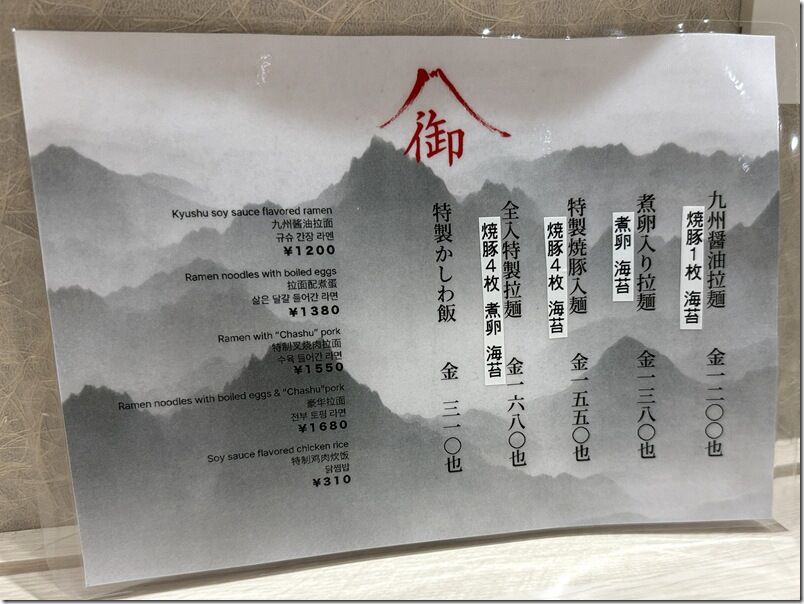 御
九州醤油拉麺
焼豚1枚 海苔
金一二〇〇也
煮卵入り拉麺
煮卵 海苔
金一三八〇也
特製焼豚入麺
焼豚4枚 海苔
金一五五〇也
全入特製拉麺
焼豚4枚 煮卵 海苔
金一六八〇也
特製かしわ飯
金 三一〇也
Kyushu soy sauce flavored ramen
九州醤油拉面
규슈 간장 라멘
¥1200
Ramen noodles with boiled eggs
拉面配煮蛋
삶은 달걀 들어간 라면
¥1380
Ramen with "Chashu" pork
特制叉烧肉拉面
수육 들어간 라면
¥1550
Ramen noodles with boiled eggs & "Chashu"pork
豪华拉面
전부 토핑 라면
¥1680
Soy sauce flavored chicken rice
特制鸡肉炊饭
닭찜밥
¥310